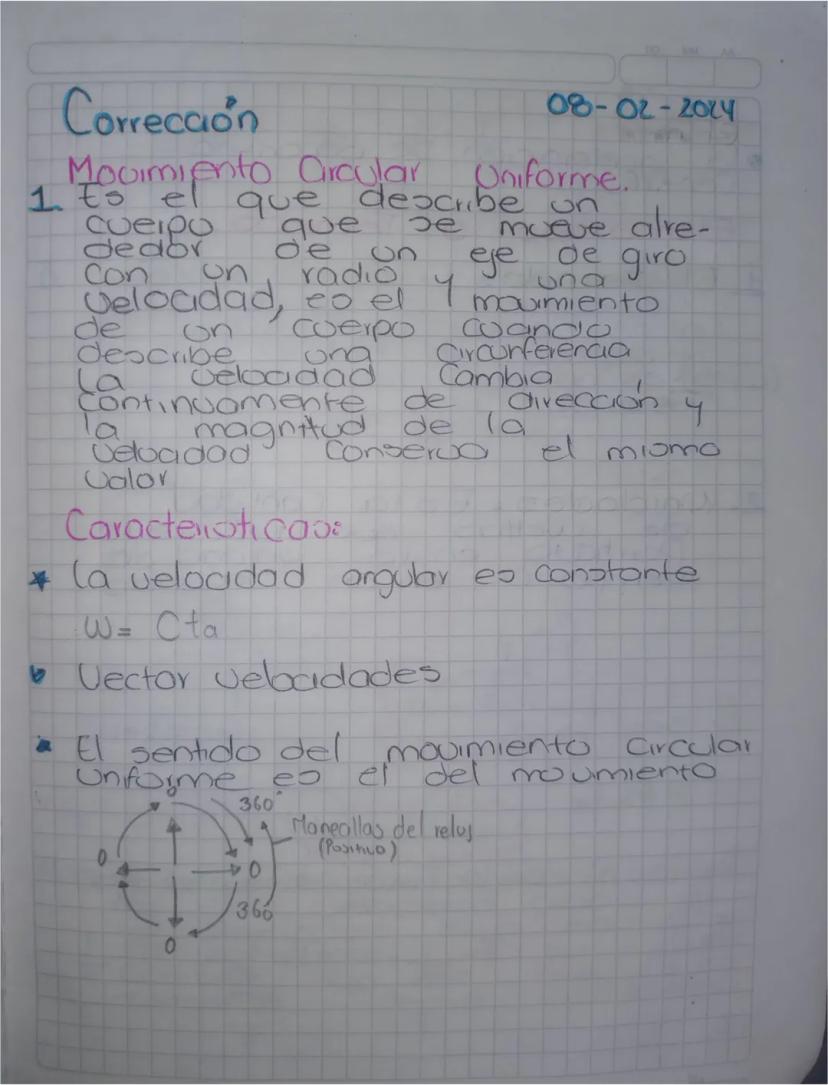 Corrección
08-02-2024
Movimiento Circular Uniforme.
1. Es el que describe un
cuerpo que se mueve alre-
dedor de un eje de giro
con un radio y una
velocidad, es el movimiento
de un cuerpo cuando
describe una circunferencia
La velocidad cambia
continuamente de dirección y
la magnitud de la
velocidad conserva el mismo
valor
Características:
* La velocidad angular es constante
W= Cta
Vector velocidades
El sentido del movimiento circular
uniforme es el del movimiento
0
360°
Manecillas del reloj
(Positivo)
0
0
360
0